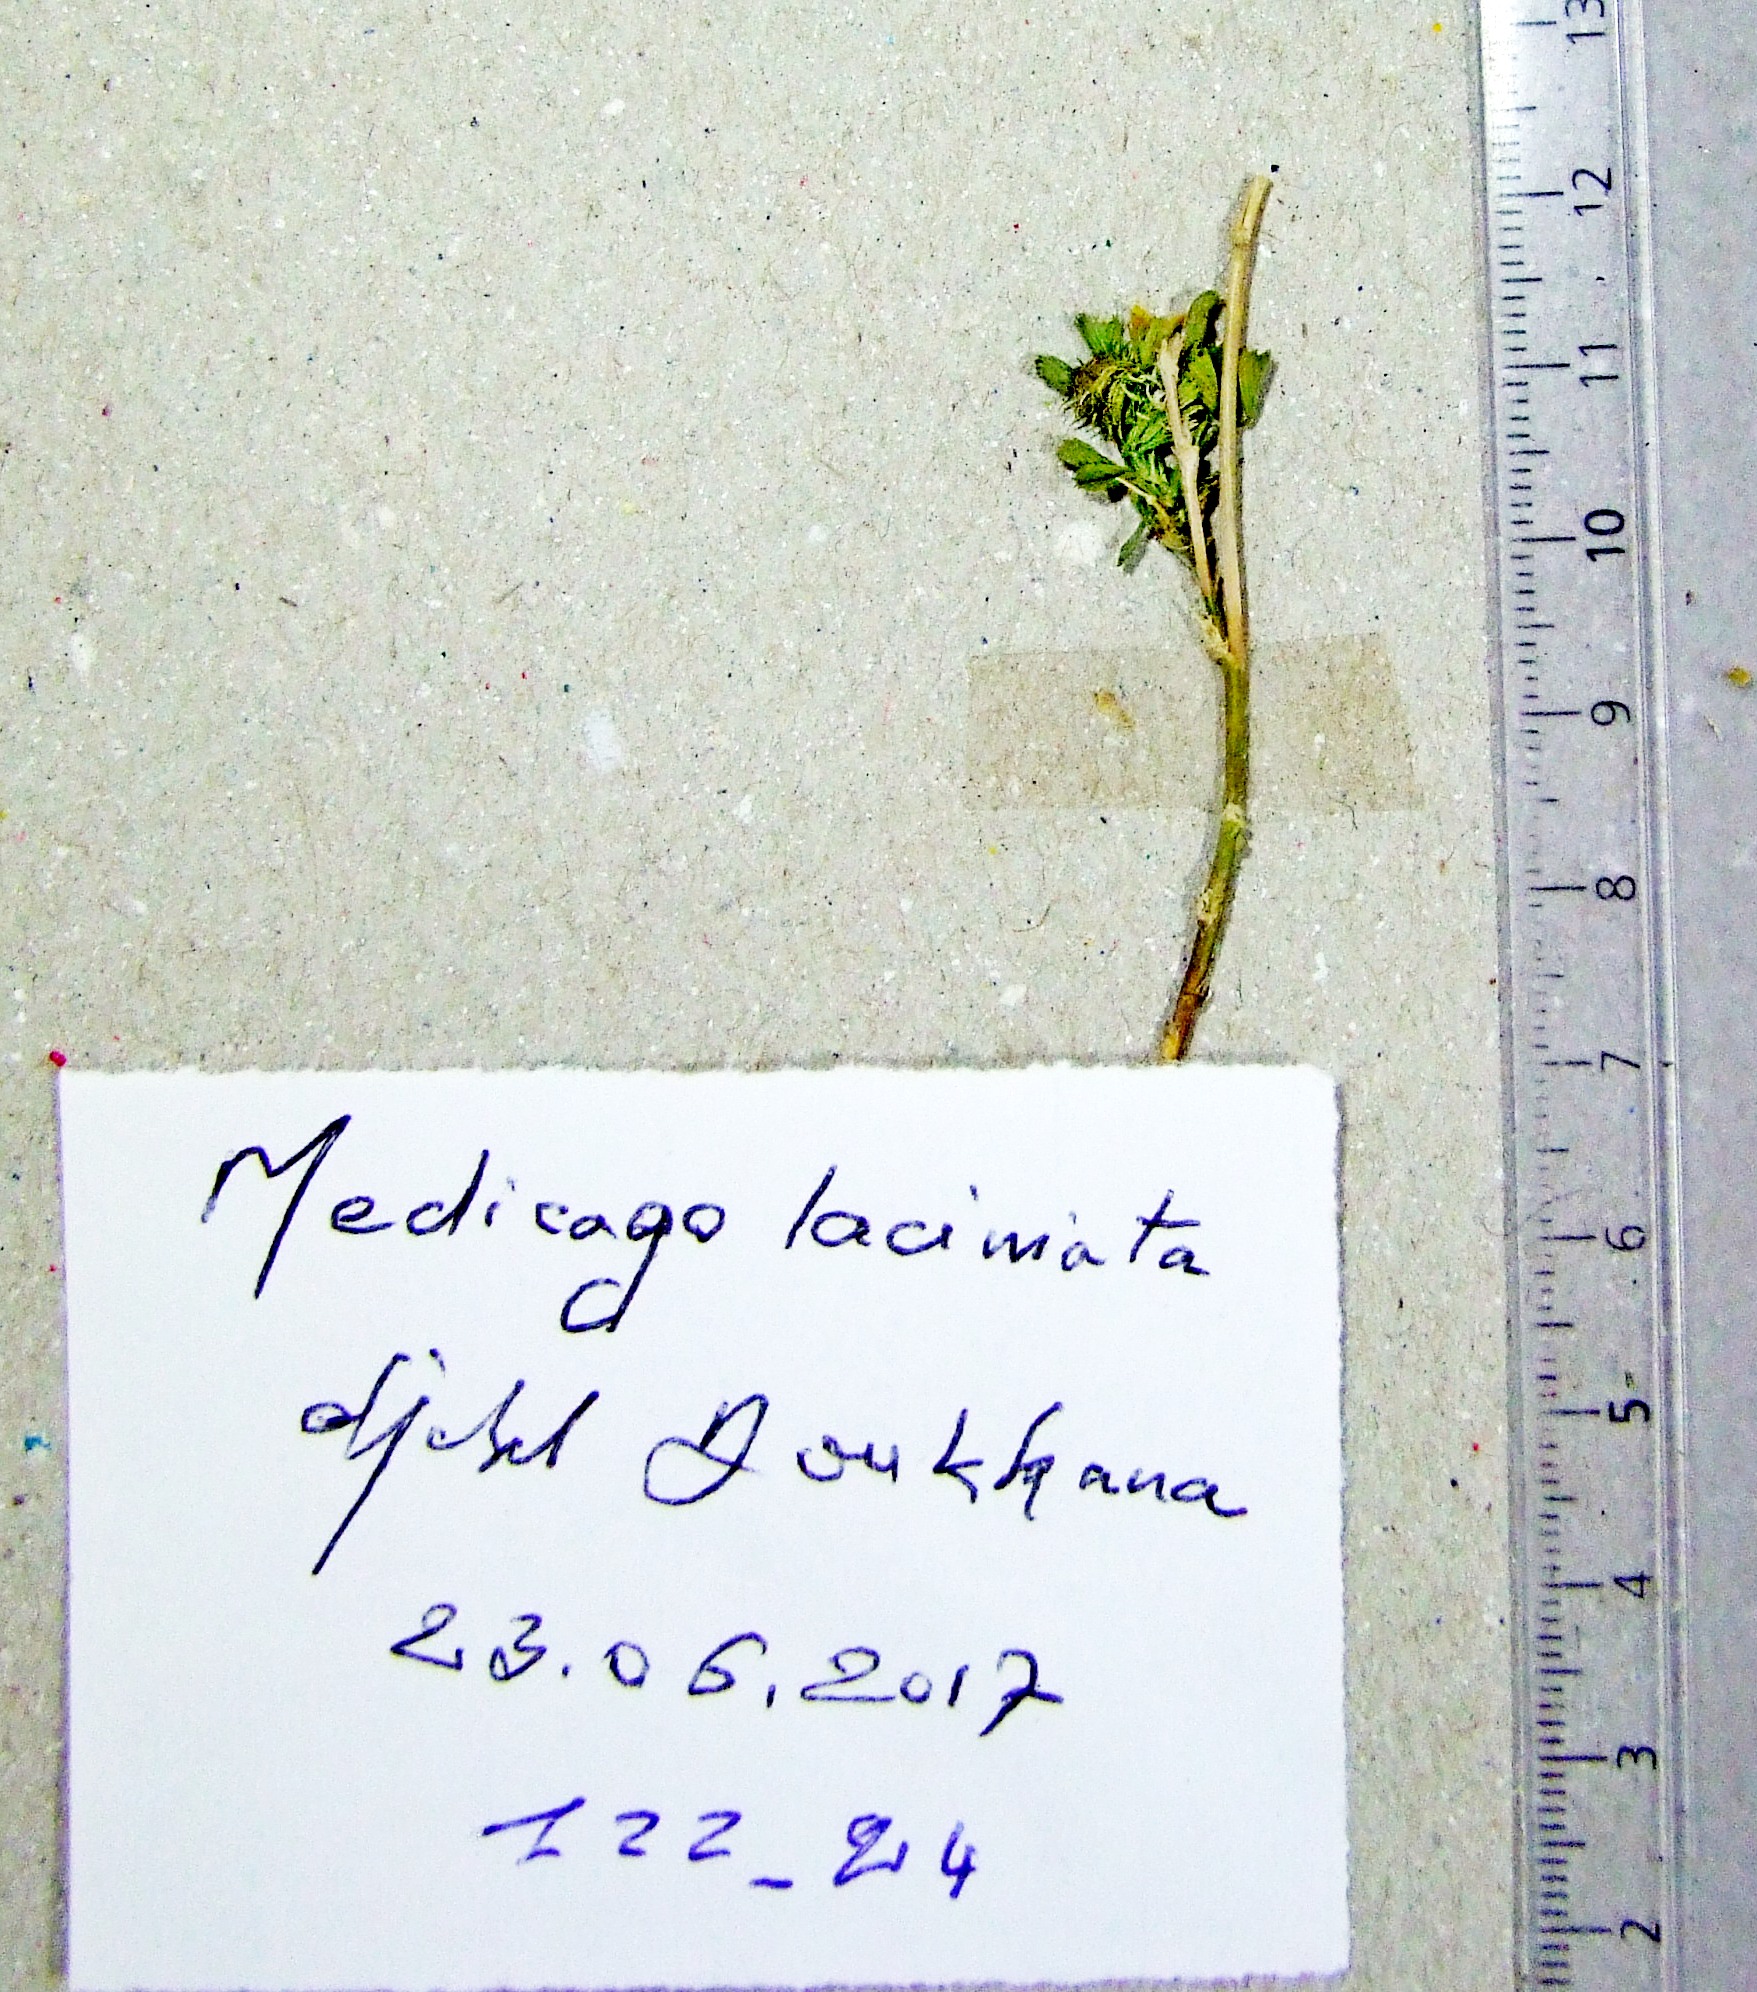 Medicago laciniata
djebel Doukkana
23.06.2017
122_24
13
12
11
10
9
8
7
6
5
4
3
2